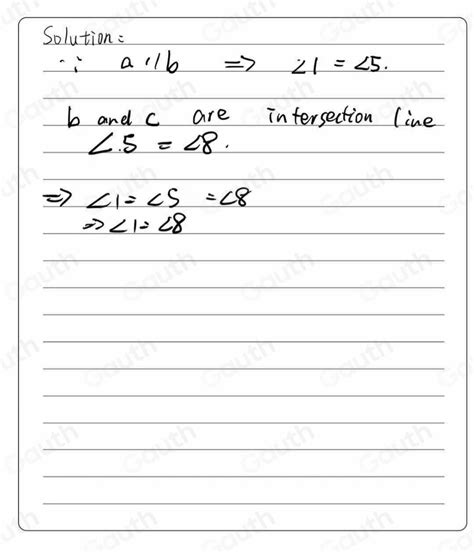 Solution:
∵ a // b => ∠1 = ∠5.
b and c are intersection line
∠.5 = ∠8.
=> ∠1 = ∠5 = ∠8
=> ∠1 = ∠8